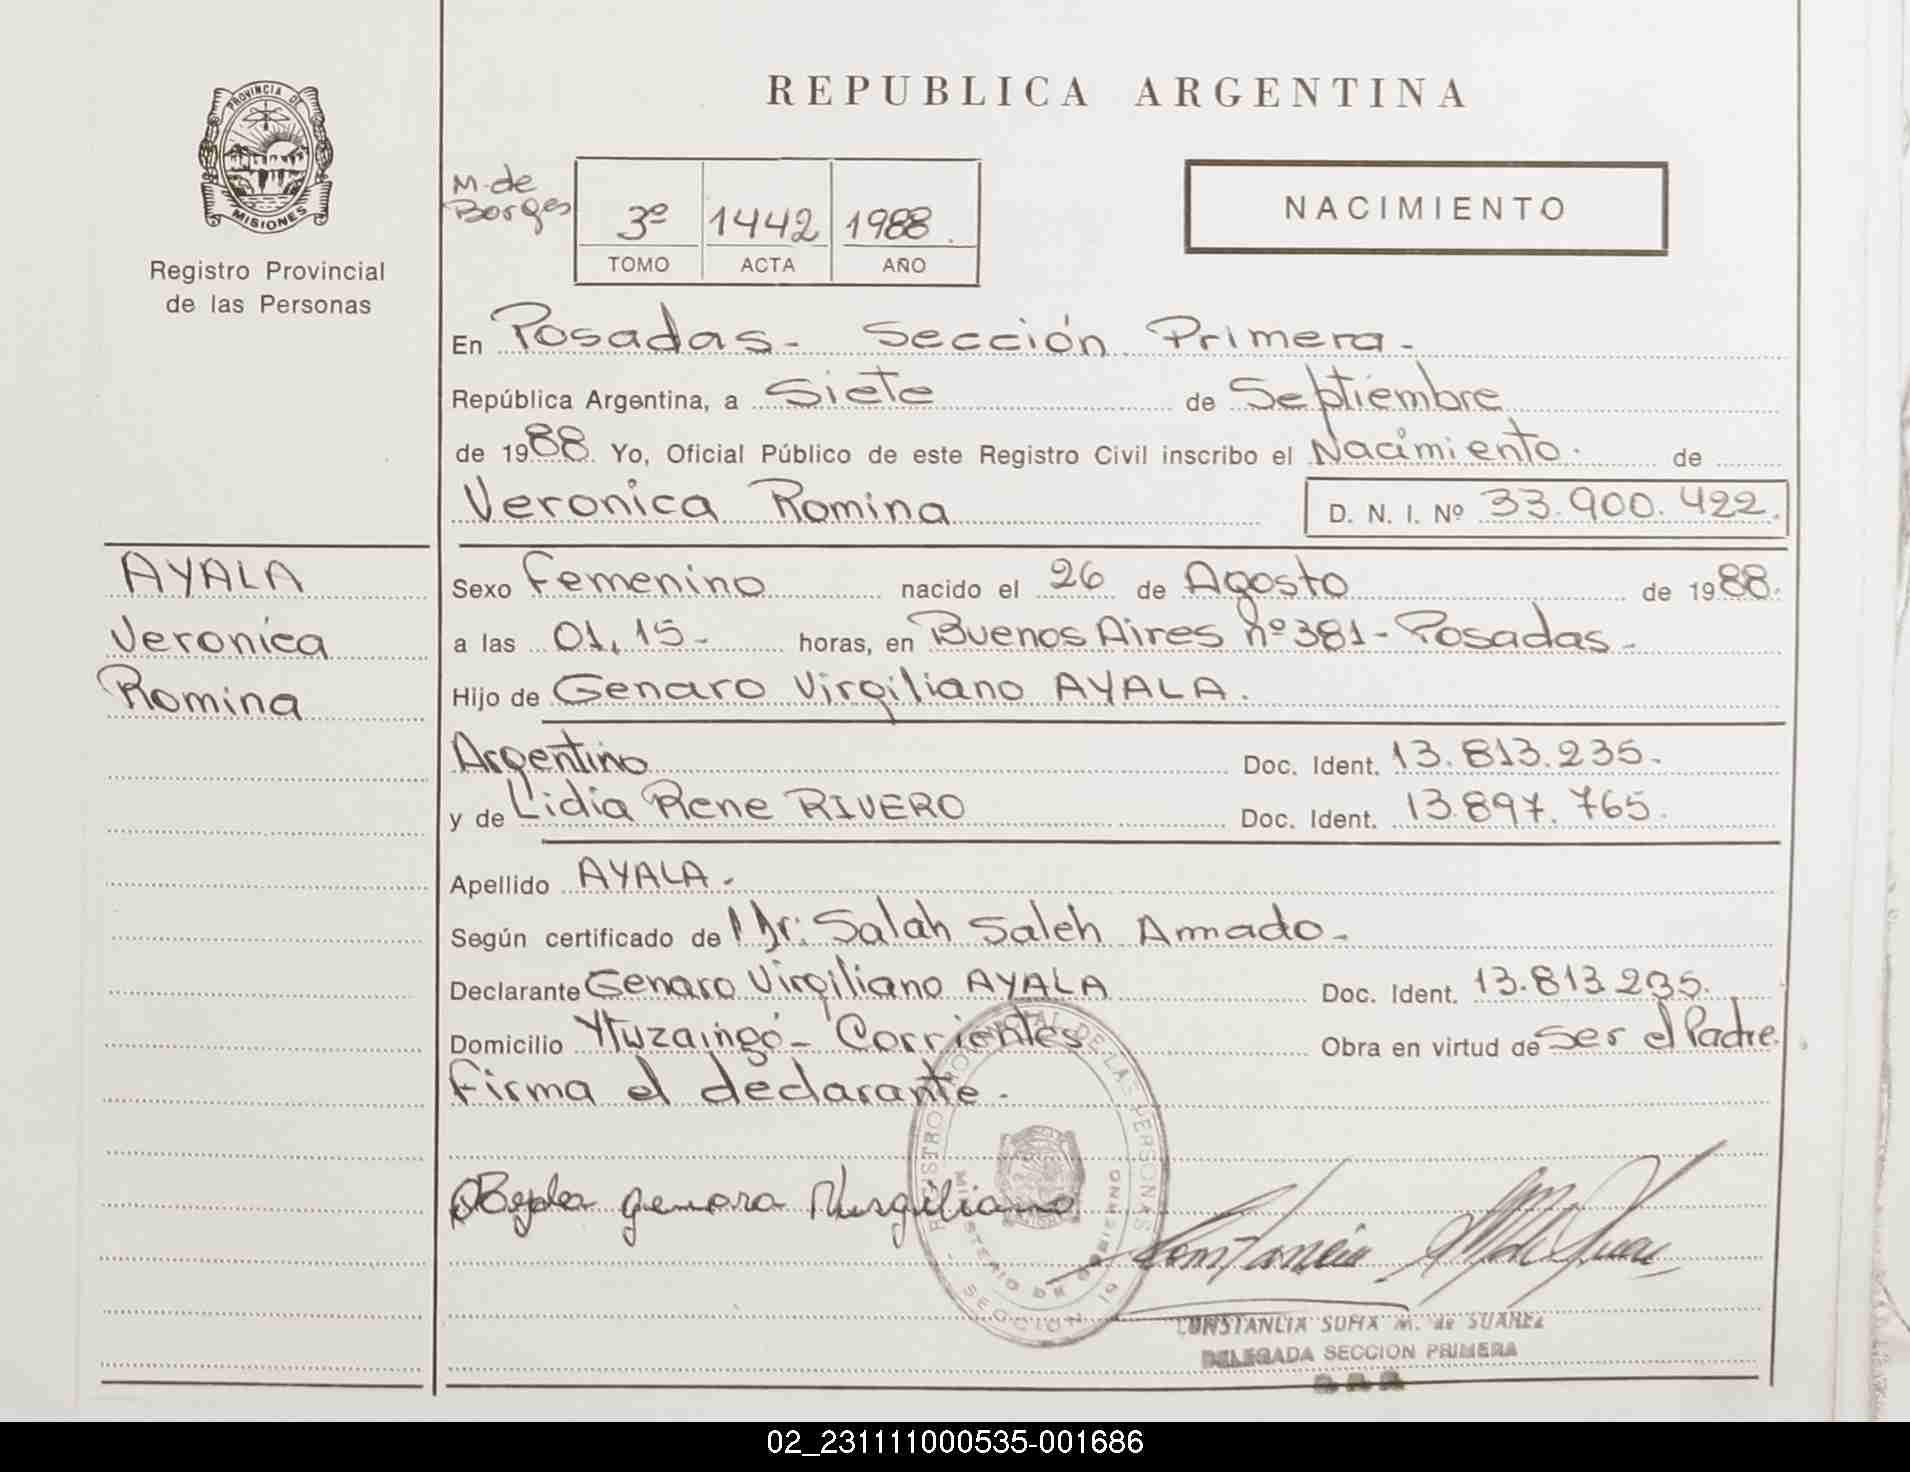 REPUBLICA ARGENTINA
PROVINCIA DE
MISIONES
Registro Provincial
de las Personas
M. de
Borges
3º 1442 1988
TOMO ACTA AÑO
NACIMIENTO
En Posadas - Sección Primera -
República Argentina, a Siete de Septiembre
de 1988. Yo, Oficial Público de este Registro Civil inscribo el Nacimiento. de
Veronica Romina D. N. I. Nº 33.900.422.
AYALA
Veronica
Romina
Sexo Femenino nacido el 26 de Agosto de 1988.
a las 01,15 - horas, en Buenos Aires nº 381 - Posadas -
Hijo de Genaro Virgiliano AYALA.
Argentino Doc. Ident. 13.813.235.
y de Lidia Rene RIVERO Doc. Ident. 13.897.765.
Apellido AYALA -
Según certificado de Dr: Salah Saleh Amado -
Declarante Genaro Virgiliano AYALA Doc. Ident. 13.813.235.
Domicilio Ytuzaingó - Corrientes Obra en virtud de ser el Padre.
Firma el declarante.
REGISTRO PROVINCIAL DE LAS PERSONAS
MINISTERIO DE GOBIERNO
SECCION 1ª
CONSTANCIA SOFIA M. de SUAREZ
DELEGADA SECCION PRIMERA
02_231111000535-001686